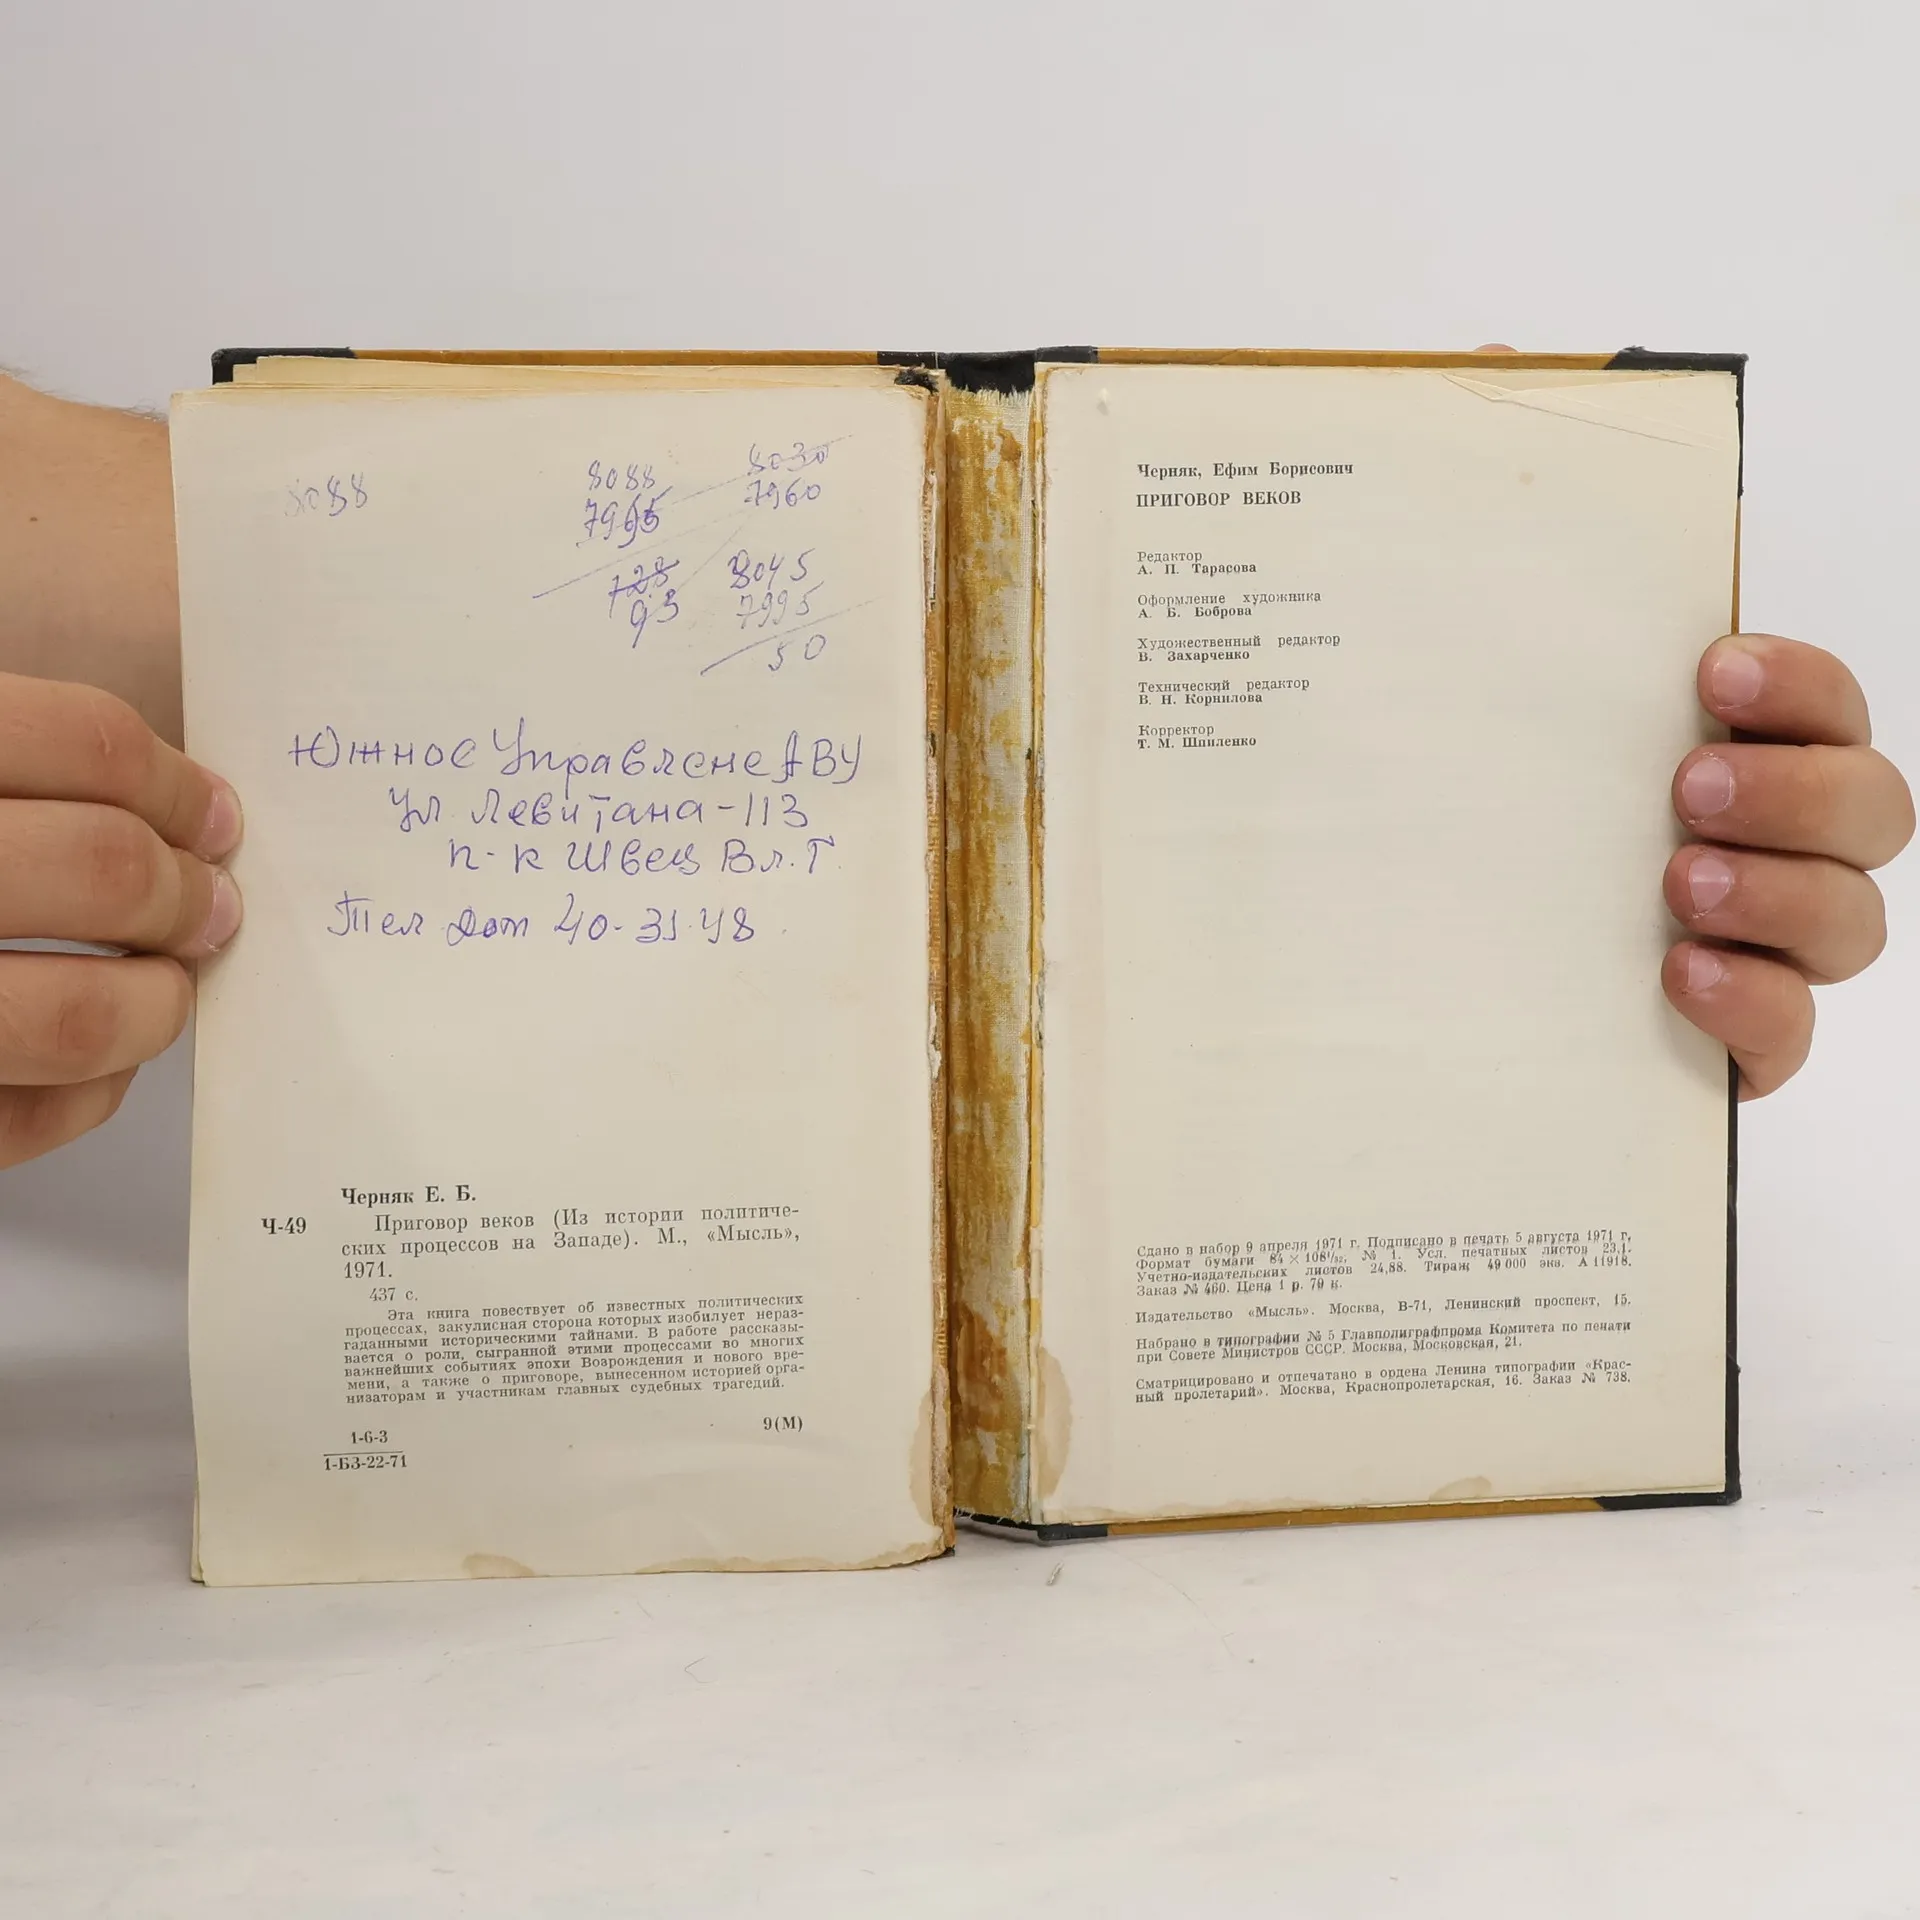 8088
8088
7995
128
93
8030
7960
8045
7995
50
Южное Управлене АВУ
ул. Левитана-113
п-к Швец Вл. Г.
Тел дом 40-31-48
Черняк Е. Б.
Ч-49
Приговор веков (Из истории политиче-
ских процессов на Западе). М., «Мысль»,
1971.
437 с.
Эта книга повествует об известных политических
процессах, закулисная сторона которых изобилует нераз-
гаданными историческими тайнами. В работе рассказы-
вается о роли, сыгранной этими процессами во многих
важнейших событиях эпохи Возрождения и нового вре-
мени, а также о приговоре, вынесенном историей орга-
низаторам и участникам главных судебных трагедий.
1-6-3
1-БЗ-22-71
9(М)
Черняк, Ефим Борисович
ПРИГОВОР ВЕКОВ
Редактор
А. П. Тарасова
Оформление художника
А. Б. Боброва
Художественный редактор
В. Захарченко
Технический редактор
В. Н. Корнилова
Корректор
Т. М. Шпиленко
Сдано в набор 9 апреля 1971 г. Подписано в печать 5 августа 1971 г.
Формат бумаги 84 × 108¹/₃₂, № 1. Усл. печатных листов 23,1.
Учетно-издательских листов 24,88. Тираж 49 000 экз. А 11918.
Заказ № 460. Цена 1 р. 79 к.
Издательство «Мысль». Москва, В-71, Ленинский проспект, 15.
Набрано в типографии № 5 Главполиграфпрома Комитета по печати
при Совете Министров СССР. Москва, Московская, 21.
Сматрицировано и отпечатано в ордена Ленина типографии «Крас-
ный пролетарий». Москва, Краснопролетарская, 16. Заказ № 738.